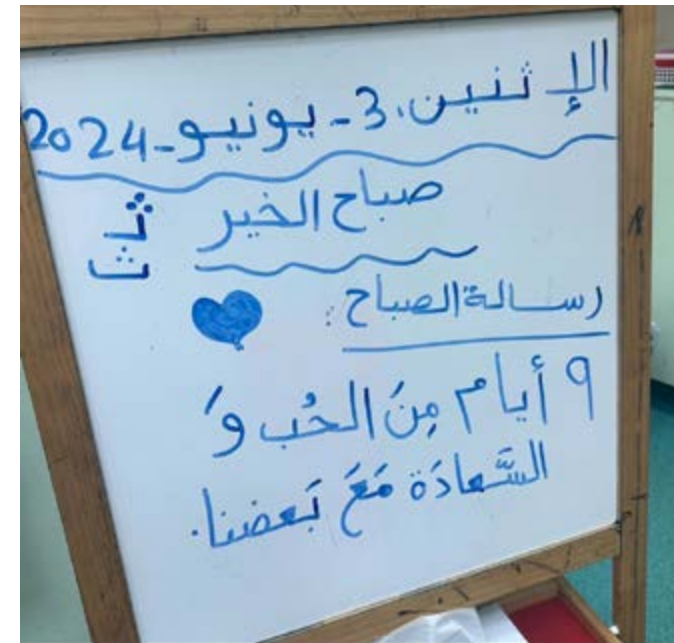 الإثنين، 3- يونيو-2024
صباح الخير
ثـ
ث
رسالة الصباح:
٩ أيام مِنَ الحُب وَ
السَّعادَة مَعَ بَعضنا.